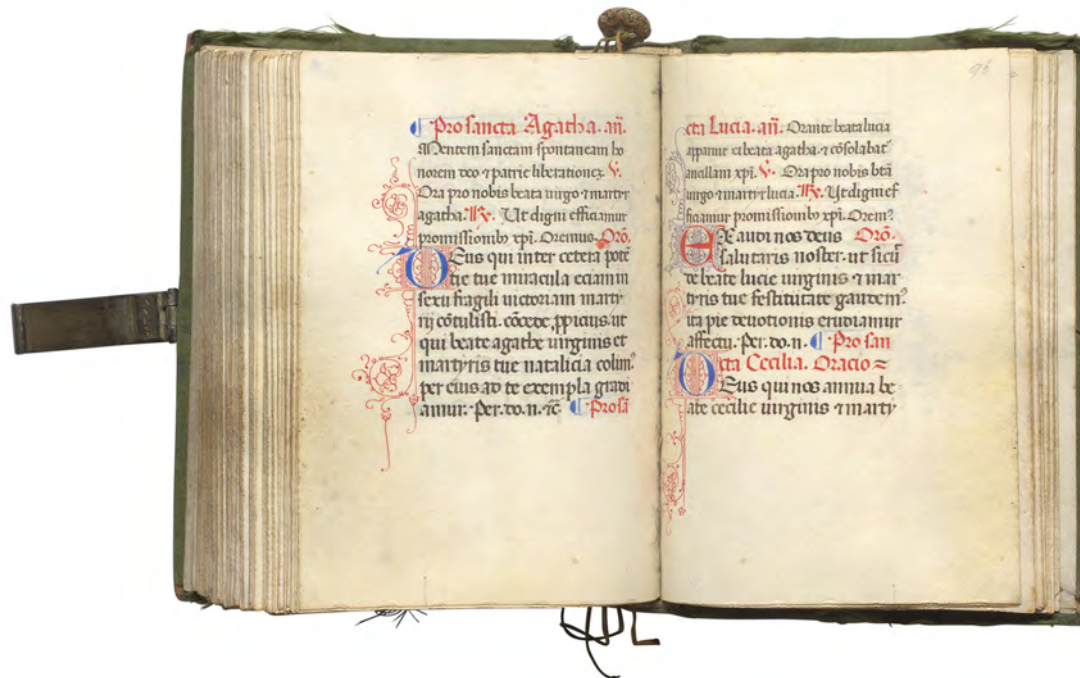 ¶ Pro sancta Agatha. an̄.
Mentem sanctam spontaneam ho
norem deo ⁊ patrie liberationeꝫ. ℣.
Ora pro nobis beata uirgo ⁊ martyr
agatha. ℟. Ut digni efficiamur
promissionibꝰ xp̄i. Oremus. Orō.
Deus qui inter cetera potē
tie tue miracula eciam in
sexu fragili uictoriam marty
rij cōtulisti. cōcede ꝓpicius. ut
qui beate agathe uirginis et
martyris tue natalicia colimꝰ
per eius ad te exempla gradi
amur. Per. do. n. ⁊c̄ ¶ Pro sā
96
cta Lucia. an̄. Orante beata lucia
apparuit ei beata agatha ⁊ cōsolabat
ancillam xp̄i. ℣. Ora pro nobis btā
uirgo ⁊ martyr lucia. ℟. Ut digni ef
ficiamur promissionibꝰ xp̄i. Oremꝰ
Exaudi nos deus Orō.
salutaris noster. ut sicut
de beate lucie uirginis ⁊ mar
tyris tue festiuitate gaudemꝰ
ita pie deuotionis erudiamur
affectu. Per. do. n. ¶ Pro san
cta Cecilia. Oracio =
Deus qui nos annua be-
ate cecilie uirginis ⁊ marty